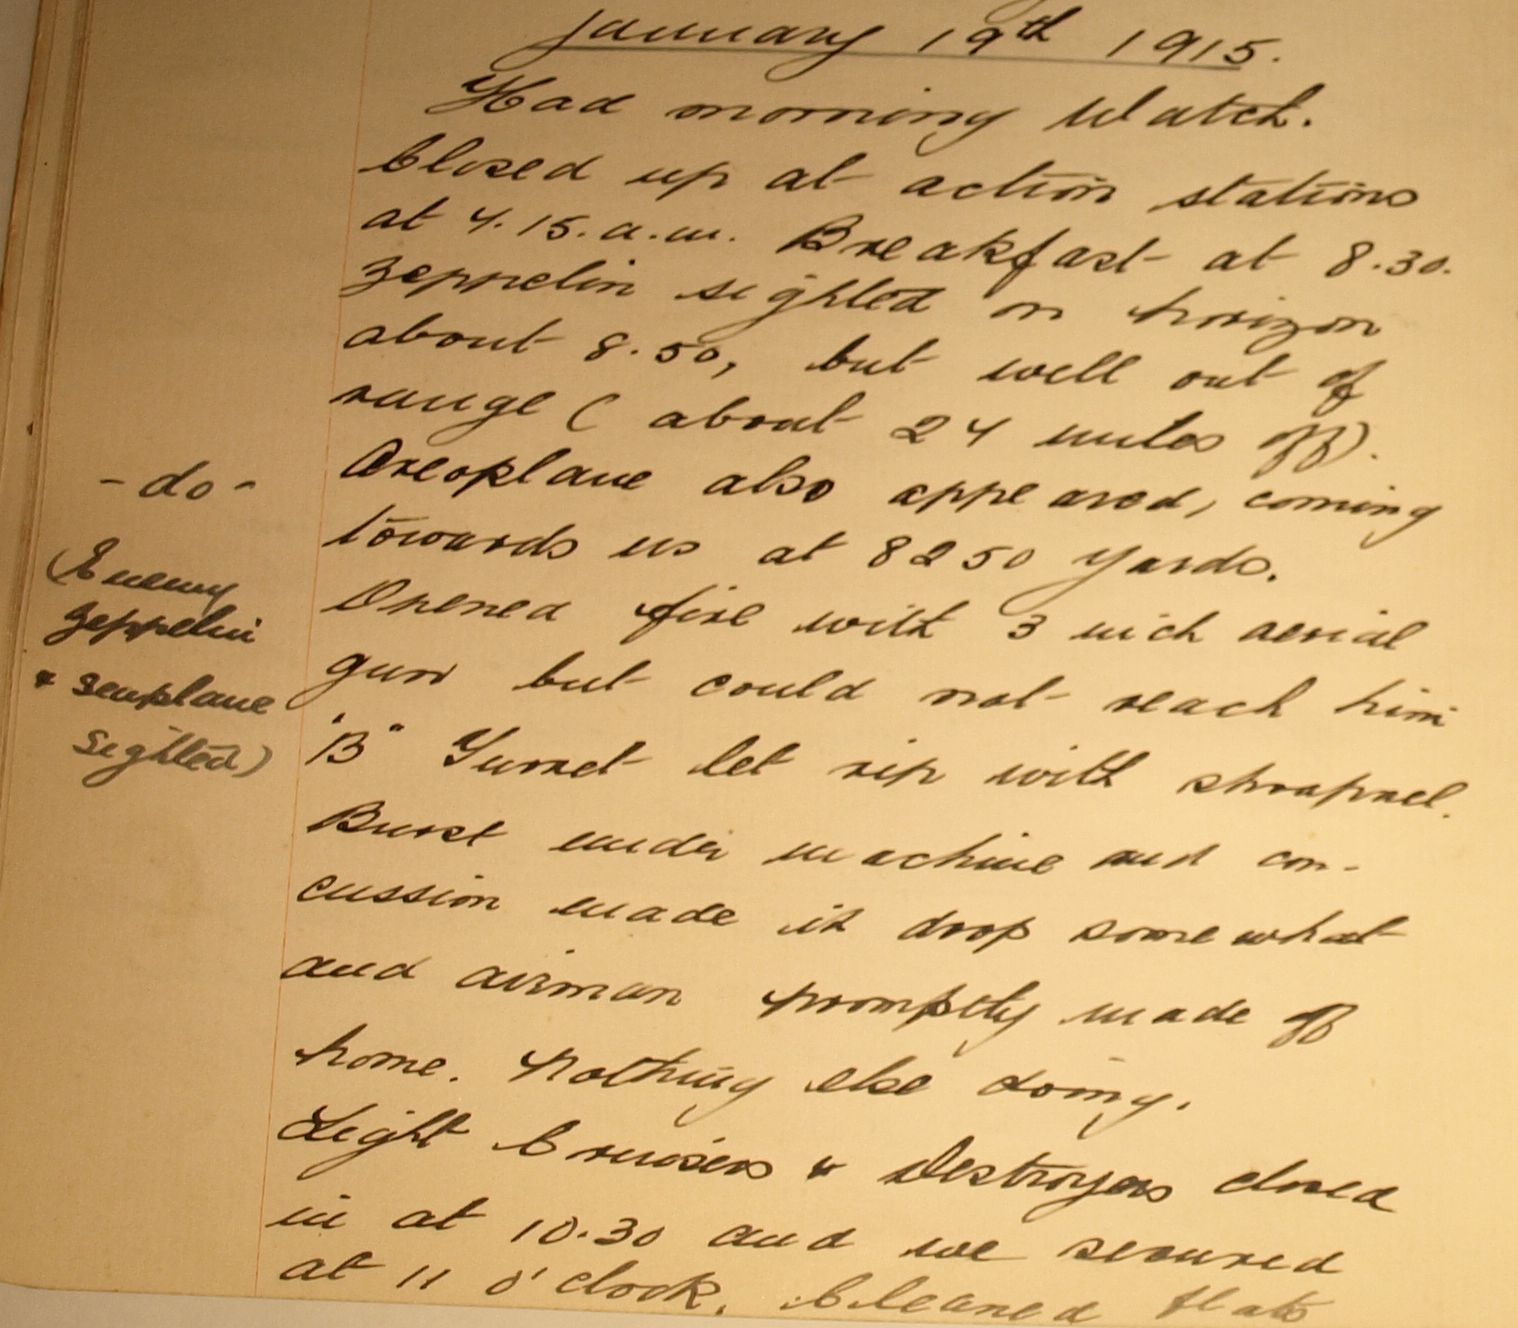 January 19th 1915.
Had morning Watch.
Closed up at action stations
at 4.15.a.m. Breakfast at 8.30.
Zeppelin sighted on horizon
about 8.50, but well out of
range (about 24 miles off).
Areoplane also appeared, coming
towards us at 8250 yards.
Opened fire with 3 inch aerial
gun but could not reach him
"B" Turret let rip with shrapnel.
Burst under machine and con-
cussion made it drop somewhat
and airman promptly made off
home. Nothing else doing.
Light Cruisers & Destroyers closed
in at 10.30 and we secured
at 11 o'clock. Cleaned flats
- do -
(Enemy
Zeppelin
& seaplane
sighted)